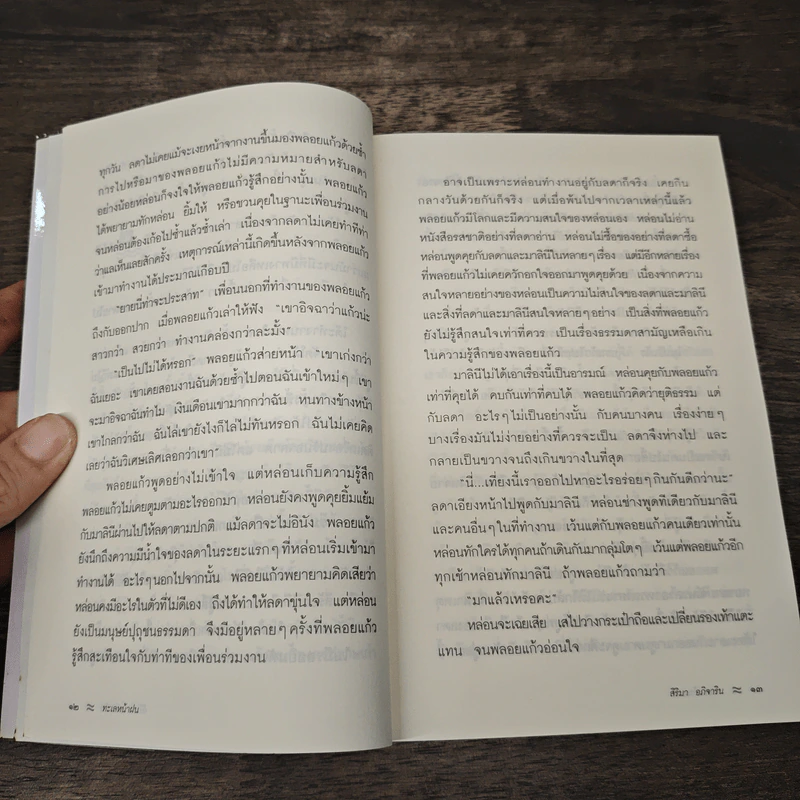 ทุกวัน ลดาไม่เคยแม้จะเงยหน้าจากงานขึ้นมองพลอยแก้วด้วยซ้ำ
การไปหรือมาของพลอยแก้วไม่มีความหมายสำหรับลดา
อย่างน้อยหล่อนก็จงใจให้พลอยแก้วรู้สึกอย่างนั้น พลอยแก้ว
ได้พยายามทักหล่อน ยิ้มให้ หรือชวนคุยในฐานะเพื่อนร่วมงาน
จนหล่อนต้องเก้อไปซ้ำแล้วซ้ำเล่า เนื่องจากลดาไม่เคยทำทีท่า
ว่าแลเห็นเลยสักครั้ง เหตุการณ์เหล่านี้เกิดขึ้นหลังจากพลอยแก้ว
เข้ามาทำงานได้ประมาณเกือบปี
"ยายนี่ท่าจะประสาท" เพื่อนนอกที่ทำงานของพลอยแก้ว
ถึงกับออกปาก เมื่อพลอยแก้วเล่าให้ฟัง "เขาอิจฉาว่าแก้วน่ะ
สาวกว่า สวยกว่า ทำงานคล่องกว่าละมั้ง"
"เป็นไปไม่ได้หรอก" พลอยแก้วส่ายหน้า "เขาเก่งกว่า
ฉันเยอะ เขาเคยสอนงานฉันด้วยซ้ำไปตอนฉันเข้าใหม่ๆ เขา
จะมาอิจฉาฉันทำไม เงินเดือนเขามากกว่าฉัน หนทางข้างหน้า
เขาไกลกว่าฉัน ฉันไล่เขายังไงก็ไล่ไม่ทันหรอก ฉันไม่เคยคิด
เลยว่าฉันวิเศษเลิศเลอกว่าเขา"
พลอยแก้วพูดอย่างไม่เข้าใจ แต่หล่อนเก็บความรู้สึก
พลอยแก้วไม่เคยตูมตามอะไรออกมา หล่อนยังคงพูดคุยยิ้มแย้ม
กับมาลินีผ่านไปให้ลดาตามปกติ แม้ลดาจะไม่อินัง พลอยแก้ว
ยังนึกถึงความมีน้ำใจของลดาในระยะแรกๆ ที่หล่อนเริ่มเข้ามา
ทำงานได้ อะไรๆ นอกไปจากนั้น พลอยแก้วพยายามคิดเสียว่า
หล่อนคงมีอะไรในตัวที่ไม่ดีเอง ถึงได้ทำให้ลดาขุ่นใจ แต่หล่อน
ยังเป็นมนุษย์ปุถุชนธรรมดา จึงมีอยู่หลายๆ ครั้งที่พลอยแก้ว
รู้สึกสะเทือนใจกับท่าทีของเพื่อนร่วมงาน
๑๒ ≈ ทะเลหน้าฝน
อาจเป็นเพราะหล่อนทำงานอยู่กับลดาก็จริง เคยกิน
กลางวันด้วยกันก็จริง แต่เมื่อพ้นไปจากเวลาเหล่านี้แล้ว
พลอยแก้วมีโลกและมีความสนใจของหล่อนเอง หล่อนไม่อ่าน
หนังสือรสชาติอย่างที่ลดาอ่าน หล่อนไม่ซื้อของอย่างที่ลดาซื้อ
หล่อนพูดคุยกับลดาและมาลินีในหลายๆ เรื่อง แต่มีอีกหลายเรื่อง
ที่พลอยแก้วไม่เคยควักอกใจออกมาพูดคุยด้วย เนื่องจากความ
สนใจหลายอย่างของหล่อนเป็นความไม่สนใจของลดาและมาลินี
และสิ่งที่ลดาและมาลินีสนใจหลายๆ อย่าง เป็นสิ่งที่พลอยแก้ว
ยังไม่รู้สึกสนใจเท่าที่ควร เป็นเรื่องธรรมดาสามัญเหลือเกิน
ในความรู้สึกของพลอยแก้ว
มาลินีไม่ได้เอาเรื่องนี้เป็นอารมณ์ หล่อนคุยกับพลอยแก้ว
เท่าที่คุยได้ คบกันเท่าที่คบได้ พลอยแก้วคิดว่ายุติธรรม แต่
กับลดา อะไรๆ ไม่เป็นอย่างนั้น กับคนบางคน เรื่องง่ายๆ
บางเรื่องมันไม่ง่ายอย่างที่ควรจะเป็น ลดาจึงห่างไป และ
กลายเป็นขวางจนถึงเกินขวางในที่สุด
"นี่...เที่ยงนี้เราออกไปหาอะไรอร่อยๆ กินกันดีกว่านะ"
ลดาเอียงหน้าไปพูดกับมาลินี หล่อนช่างพูดทีเดียวกับมาลินี
และคนอื่นๆ ในที่ทำงาน เว้นแต่กับพลอยแก้วคนเดียวเท่านั้น
หล่อนทักใครได้ทุกคนถ้าเดินกันมากลุ่มโตๆ เว้นแต่พลอยแก้วอีก
ทุกเช้าหล่อนทักมาลินี ถ้าพลอยแก้วถามว่า
"มาแล้วเหรอคะ"
หล่อนจะเฉยเสีย เสไปวางกระเป๋าถือและเปลี่ยนรองเท้าแตะ
แทน จนพลอยแก้วอ่อนใจ
สิริมา อภิจาริน ≈ ๑๓